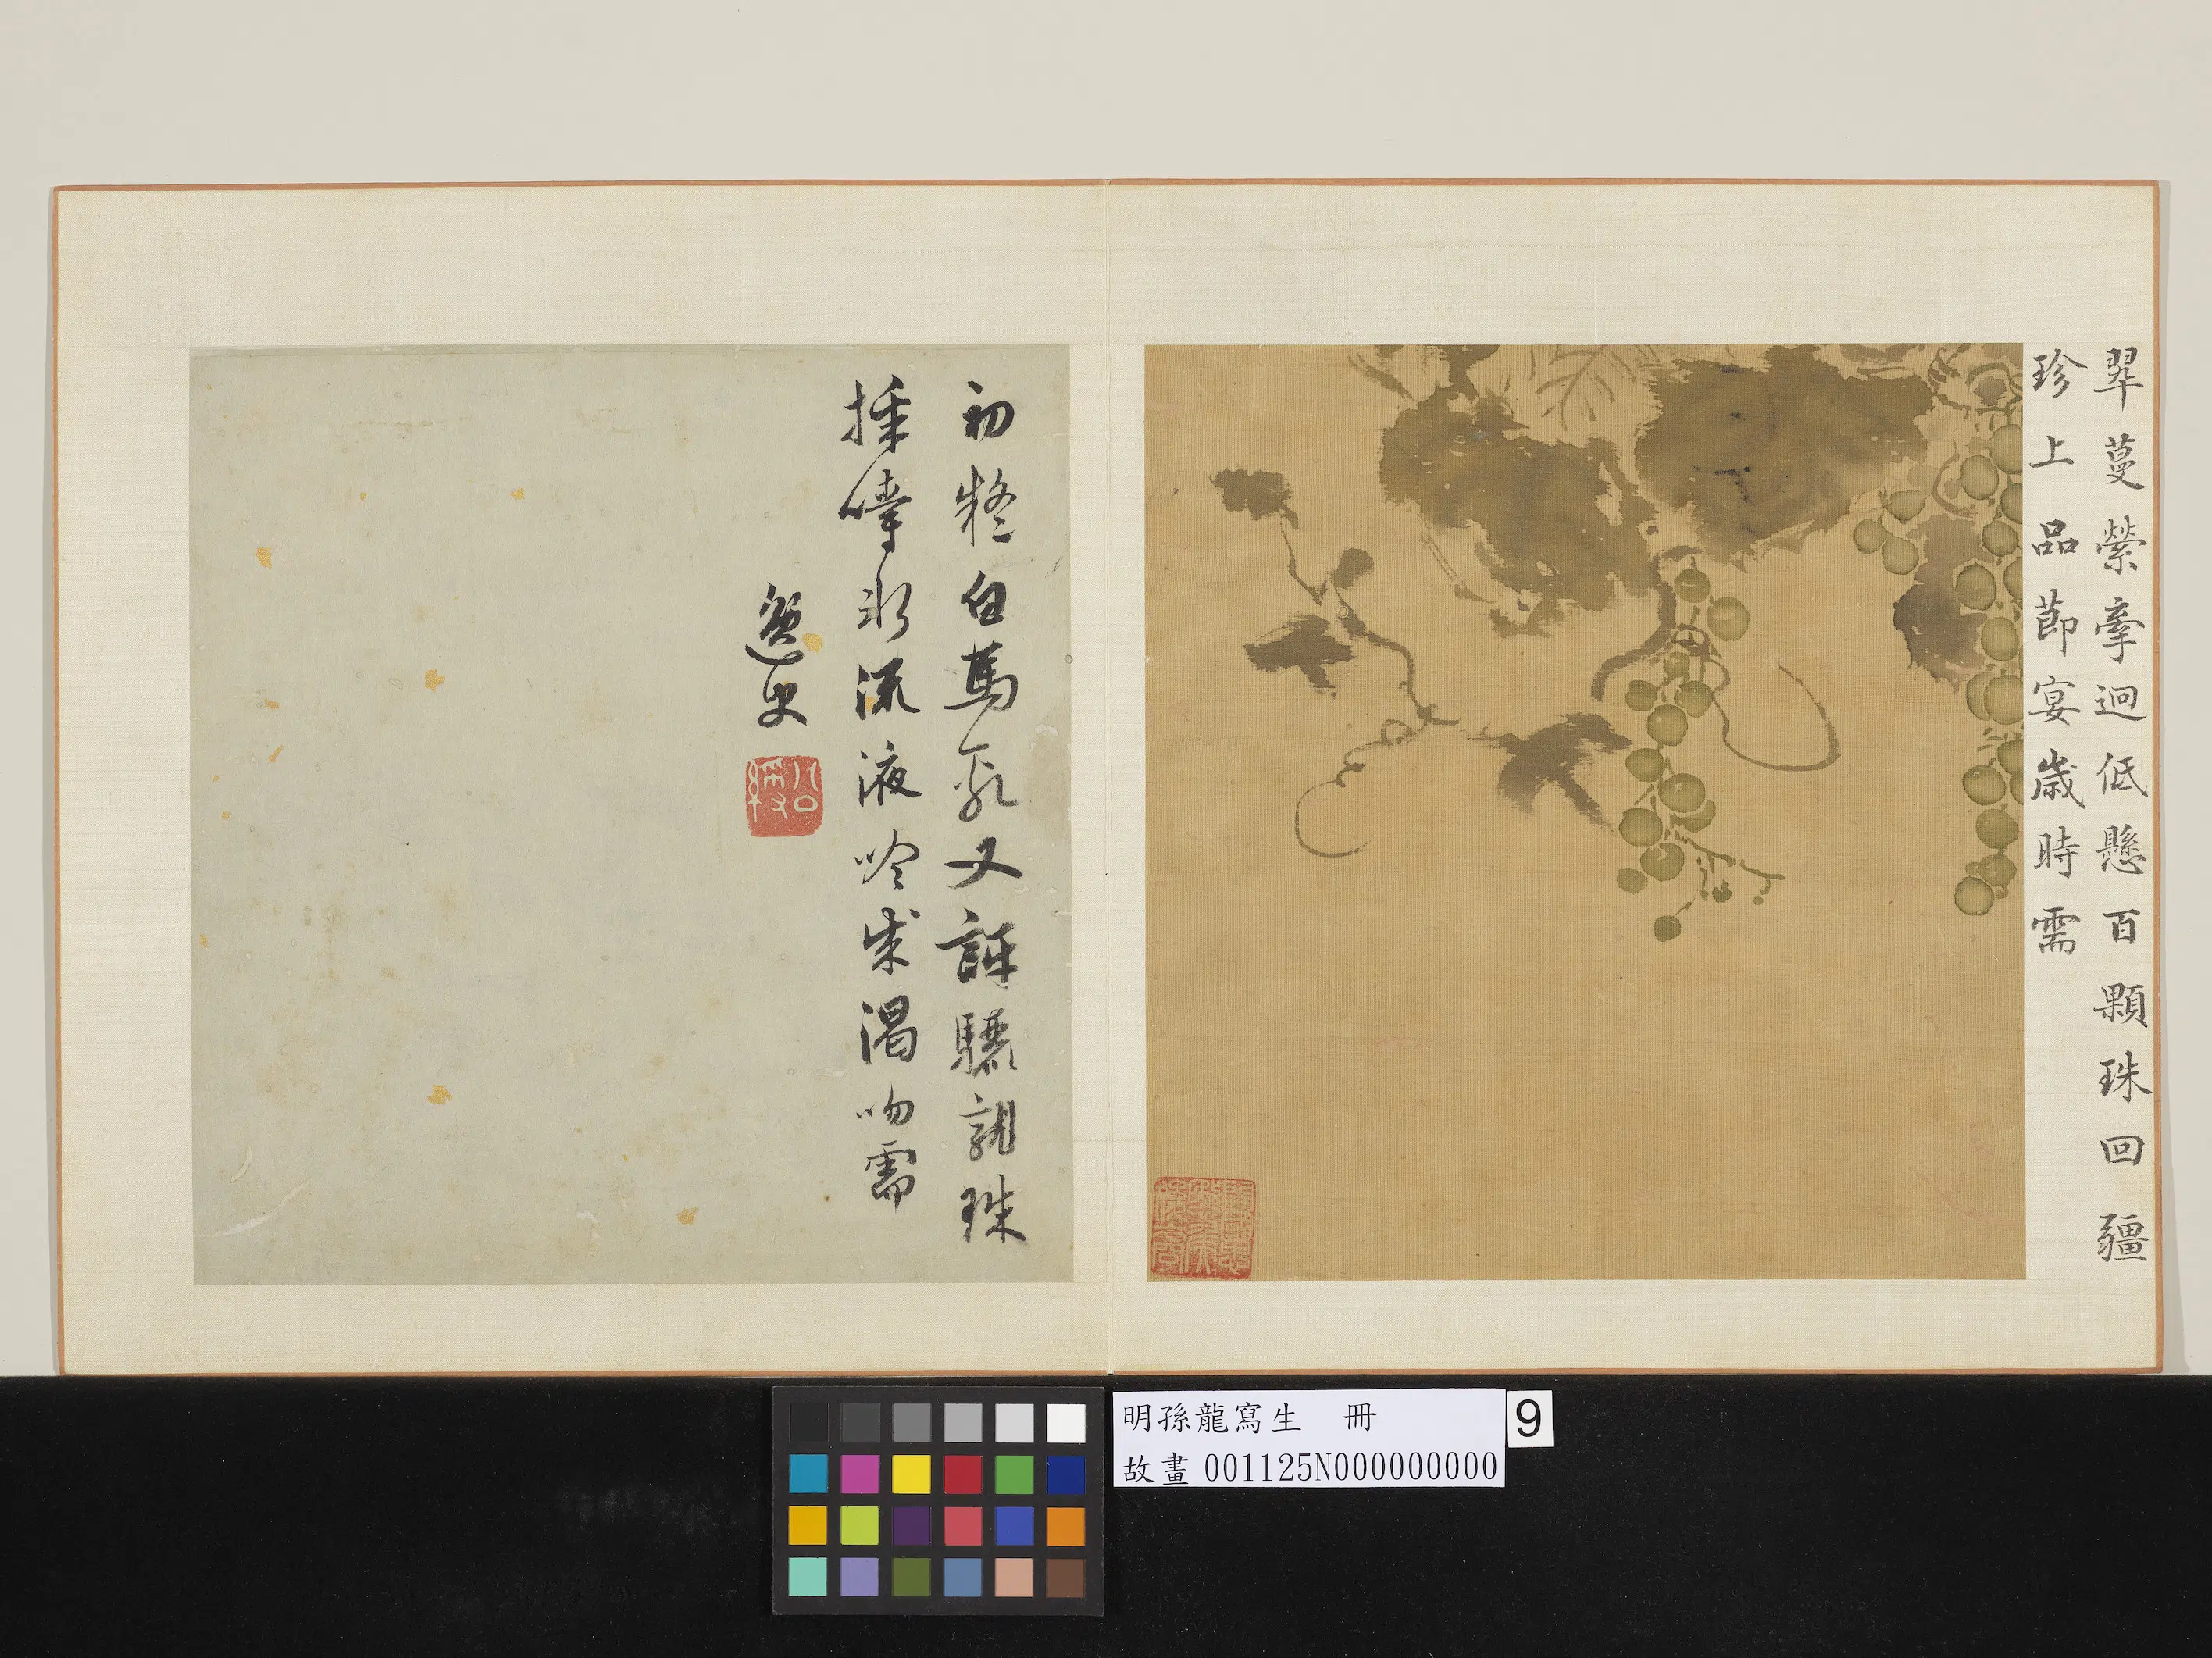 翠蔓縈牽迴低懸百顆珠回疆
珍上品節宴歲時需
初疑白馬乳又訝驪龍珠
採嘗水流液吟成渴吻需
逸史
明孫龍寫生 冊
故畫 001125N000000000
9